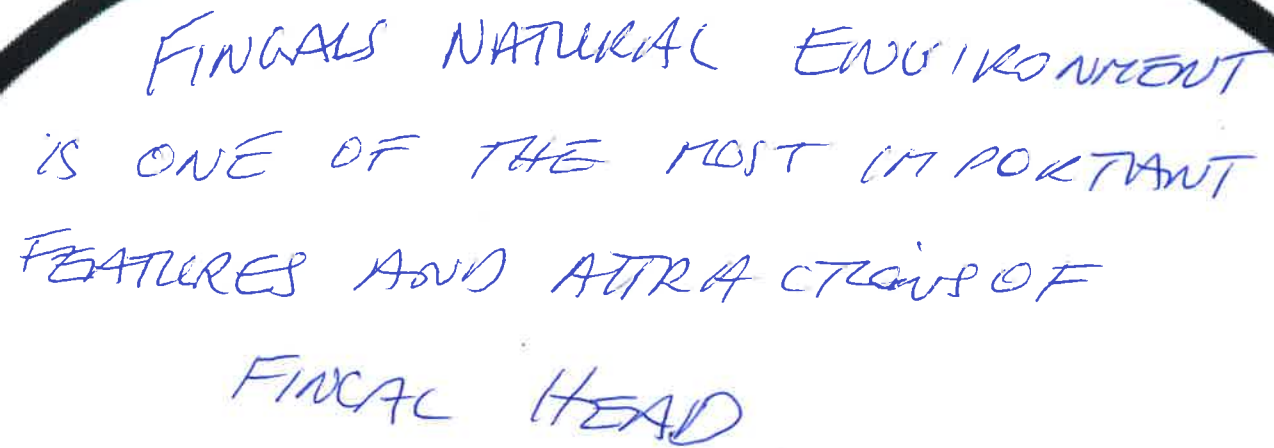 FINGALS NATURAL ENVIRONMENT
IS ONE OF THE MOST IMPORTANT
FEATURES AND ATTRACTIONS OF
FINGAL HEAD